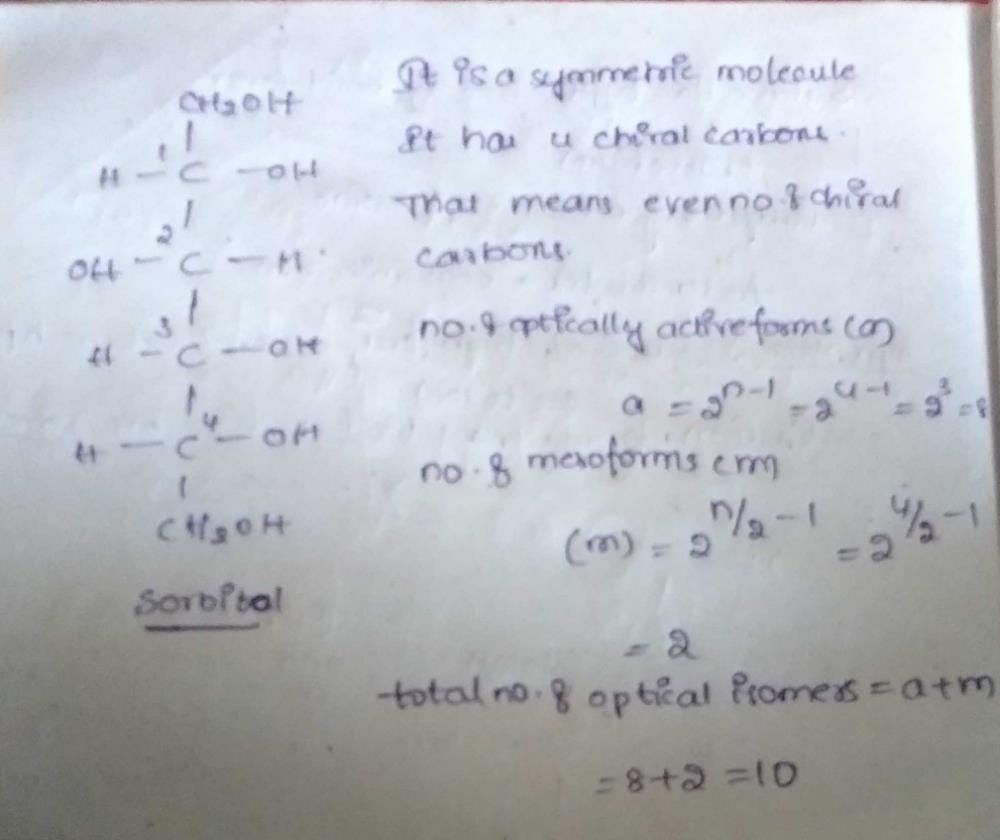 CH2OH
|
H - 1 C - OH
|
OH - 2 C - H
|
H - 3 C - OH
|
H - C 4 - OH
|
CH2OH
Sorbitol
It is a symmetric molecule
It has 4 chiral carbons.
That means even no. of chiral
carbons.
no. of optically active forms (a)
a = 2^n-1 = 2^4-1 = 2^3 = 8
no. of mesoforms (m)
(m) = 2^n/2 - 1 = 2^4/2 - 1
= 2
total no. of optical isomers = a+m
= 8+2 = 10